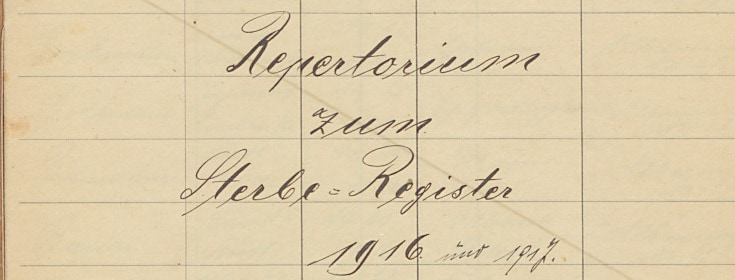 Repertorium
zum
Sterbe=Register
1916. und 1917.